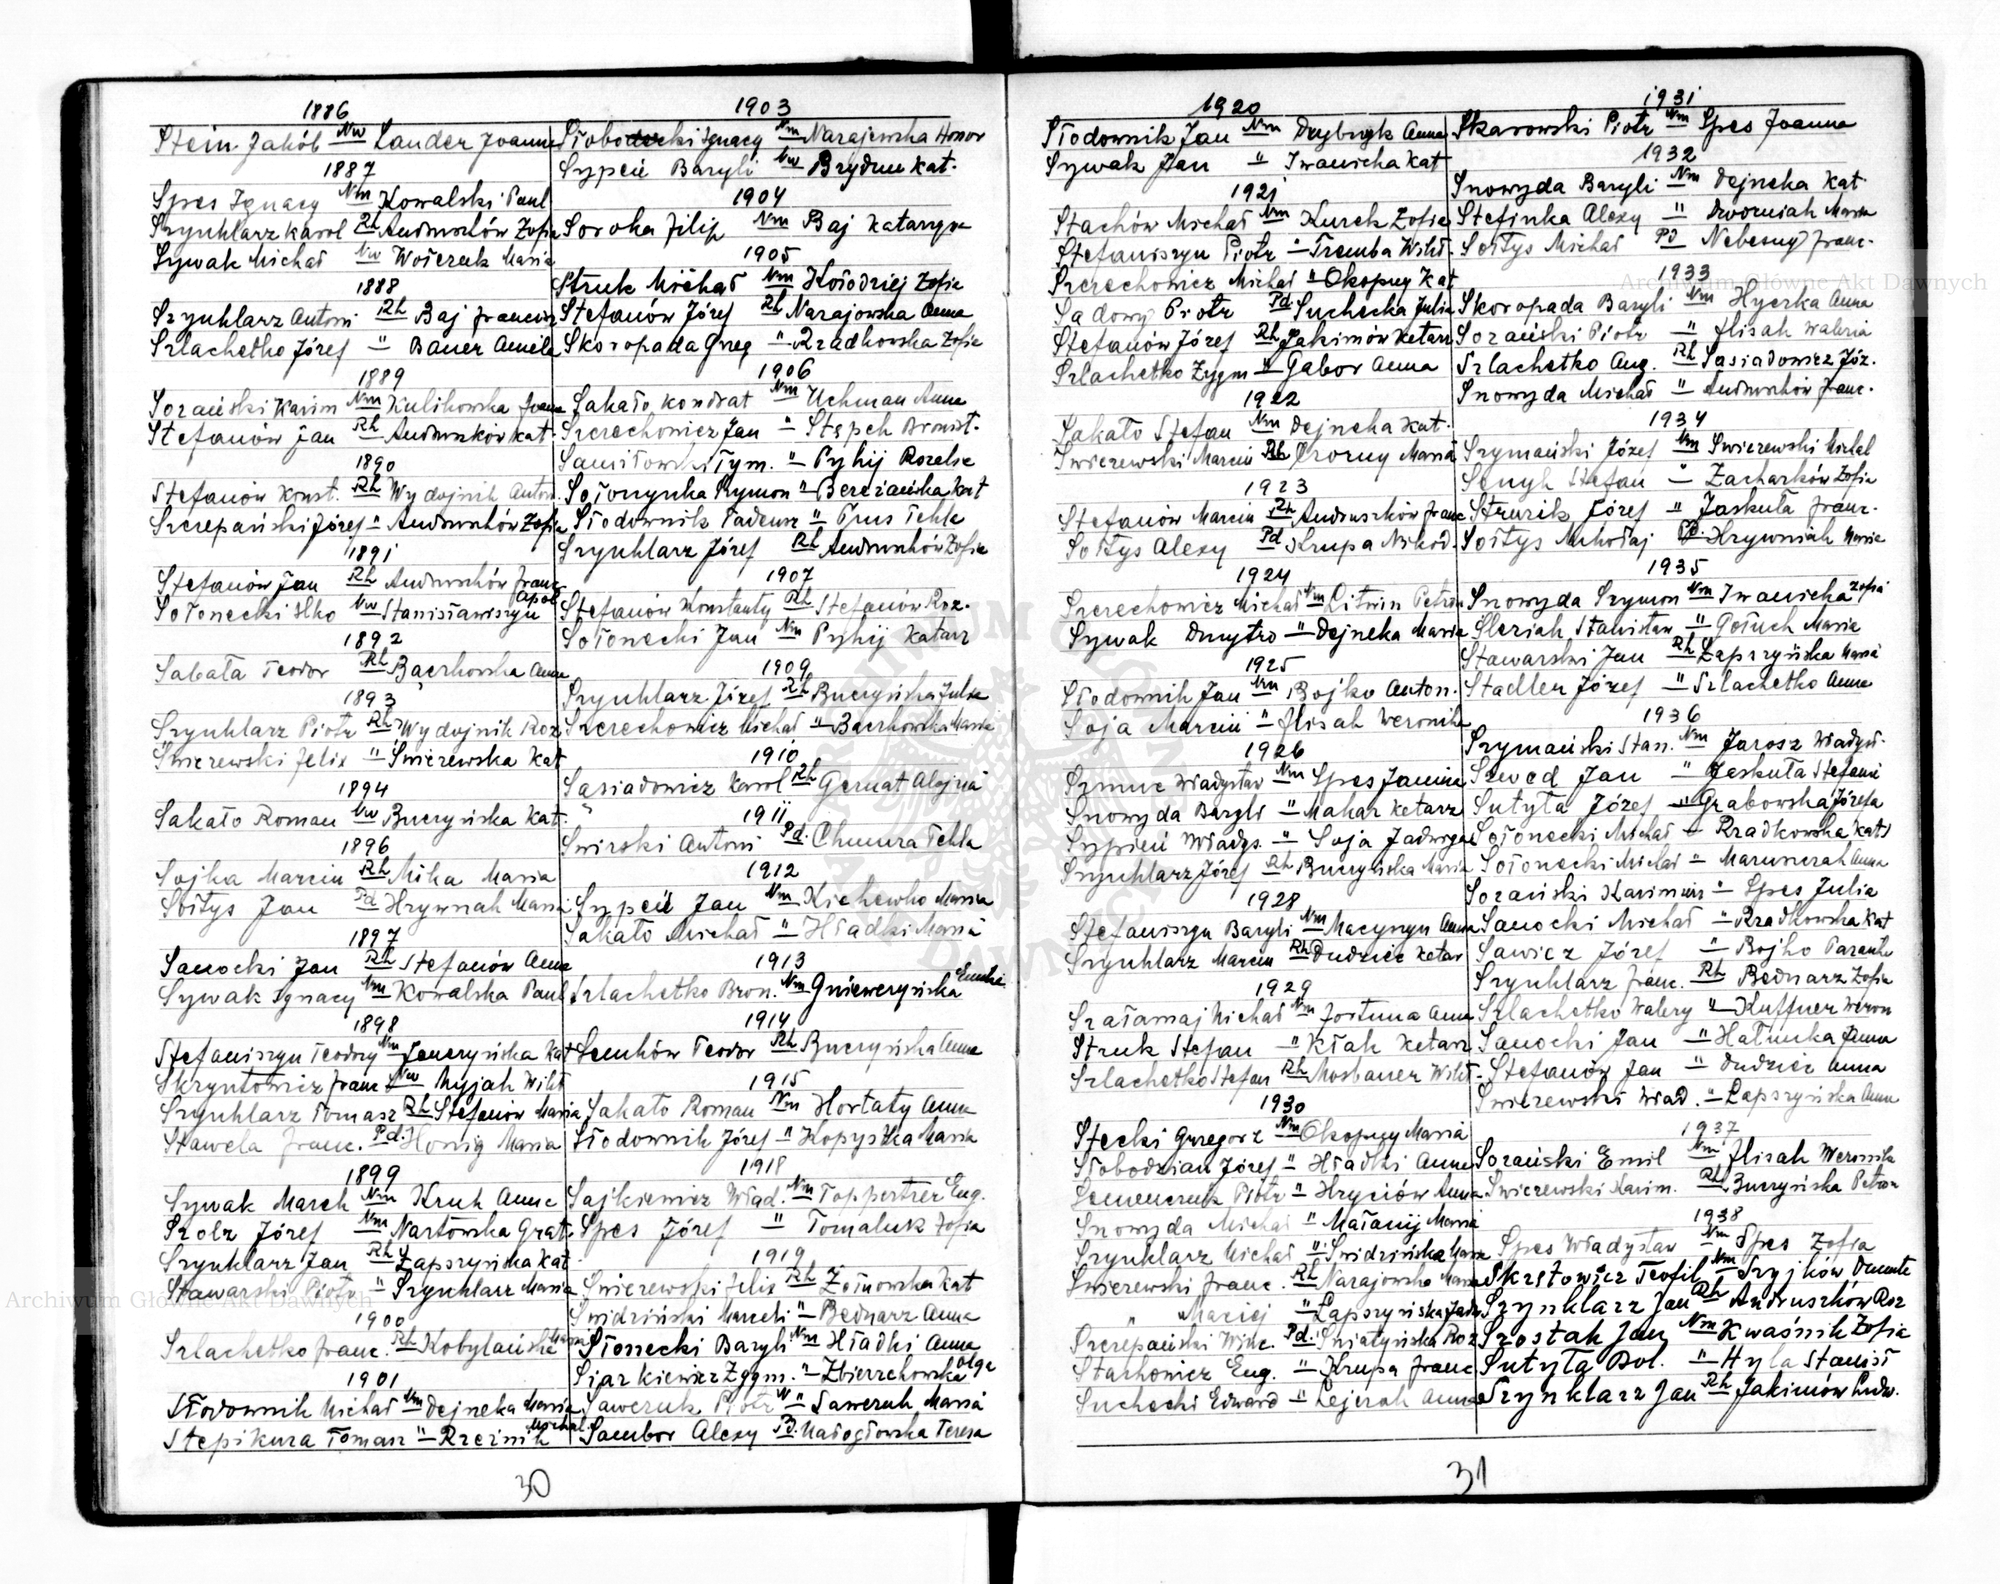 1886
Stein Jakób Nw Lauder Joanna
1887
Spes Ignacy Nm Kowalski Paul
Szynklarz Karol Rh Andruszków Zofia
Sywak Michał Nw Woiczuk Maria
1888
Szynklarz Antoni Rh Baj Francisz
Szlachetko Józef " Bauer Amelia
1889
Sozański Kazim Nm Kulikowska Joanna
Stefanów Jan Rh Andruszków Kat.
1890
Stefanów Konst. Rh Wydojnik Anton.
Szczepański Józef " Andruszków Zofia
1891
Stefanów Jan Rh Andruszków Franc
Sołonecki Ilko Nw Stanisławiszyn Apol
1892
Sabała Teodor Rh Baczkowska Anna
1893
Szynklarz Piotr Rh Wydojnik Roz
Świezewski Felix " Świezewska Kat
1894
Sakało Roman Nw Buczyńska Kat.
1896
Sojka Marcin Rh Mika Maria
Sołtys Jan Pd Hrywnak Maria
1897
Sanocki Jan Rh Stefanów Anna
Sywak Ignacy Nm Kowalska Paul
1898
Stefaniszyn Teodozy Nm Kat
Skrzyntowicz Franc Nw Wyjak Wikt
Szynklarz Tomasz Rh Stefanów Maria
Stawela Franc. Pd. Honig Maria
1899
Sywak March Nm Kruk Anna
Scolz Józef Nm Nartowska Grat.
Szynklarz Jan Rh Łapszyńska Kat
Stawarski Piotr " Szynklarz Maria
1900
Szlachetko Franc. Rh Kobylańska Maria
1901
Słodownik Michał Nm Dejneka Maria
Stepikura Tomasz " Rzeźnik Michal
30
1903
Słobodecki Ignacy Nm Narajewska Honor
Sypeń Bazyli Nw Brydun Kat.
1904
Soroka Filip Nm Baj Katarzyna
1905
Struk Michał Nm Kołodziej Zofia
Stefanów Józef Rh Narajowska Anna
Skoropada Greg " Rzadkowska Zofia
1906
Sakało Kondrat Nm Uchman Anna
Szczechowicz Jan " Stępek Bronist.
Samiłowski Tym. " Pyhij Rozalia
Sołonynka Rymon " Bereżańska Kat
Słodownik Tadeusz " Prus Tekla
Szynklarz Józef Rh Andruszków Zofia
1907
Stefanów Konstanty Rh Stefanów Roz.
Sołonecki Jan Nm Pyhij Katarz
1909
Szynklarz Józef Rh Buczyńska Julia
Szczechowicz Michał " Baczkowska Maria
1910
Sasiadowicz Karol Rh Gernat Alojza
1911
Świrski Antoni Pd. Chmura Tekla
1912
Sypeń Jan Nm Kichewko Maria
Sakało Michał " Hładki Maria
1913
Szlachetko Bron. Nm Gniewczyńska Emilia
1914
Senków Teodor Rh Buczyńska Anna
1915
Sakało Roman Nm Hortaty Anna
Słodownik Józef " Kopystka Maria
1918
Sajkiewicz Wład. Nm Toppertzer Eug.
Spes Józef " Tomaluk Zofia
1919
Świezewski Felix Rh Żołnowska Kat
Świdziński Marceli " Bednarz Anna
Słonecki Bazyli Nm Hładki Anna
Siarkiewicz Zygm. " Zbierzchowska Olga
Saweruk Piotr " Saweruk Maria
Sambor Alexy Pd. Nałogłowska Teresa
1920
Słodownik Jan Nm Dzybzyk Anna
Sywak Jan " Iwanicka Kat
1921
Stachów Michał Nm Kurek Zofia
Stefaniszyn Piotr " Tremba Wikt.
Szczechowicz Michał " Okopny Kat
Sadowy Piotr Pd. Suchecka Julia
Stefanów Józef Rh Jakimów Katarz
Szlachetko Zygm " Gabor Anna
1922
Sakało Stefan Nm Dejneka Kat.
Świezewski Marcin Rh Czorny Maria
1923
Stefanów Marcin Rh Andruszków Franc
Sołtys Alexy Pd Krupa Nikod.
1924
Szczechowicz Michał Nm Litwin Petron
Sywak Dmytro " Dejneka Maria
1925
Słodownik Jan Nm Bojko Anton.
Soja Marcin " Flisak Weronika
1926
Szmuc Władysław Nm Spes Janina
Snowyda Bazyli " Mahar Katarz
Sypień Władys. " Soja Jadwiga
Szynklarz Józef Rh Buczyńska Maria
1928
Stefaniszyn Bazyli Nm Macyszyn Anna
Szynklarz Marcin Rh Dudzicz Katar
1929
Szałamaj Michał Nm Fortuna Anna
Struk Stefan " Kłak Katarz
Szlachetko Stefan Rh Mosbauer Wikt.
1930
Stecki Grzegorz Nm Okopny Maria
Słobodzian Józef " Hładki Anna
Semenczuk Piotr " Hryciów Anna
Snowyda Michał " Małanij Maria
Szynklarz Michał " Świdzińska Maria
Świezewski Franc. Rh Narajowska Maria
" Maciej " Łapszyńska Jadw
Szczepański Winc. Pd. Śniatyńska Roz
Starkowicz Eug. " Krupa Franc
Suchecki Edward " Lejczak Anna
31
1931
Skarowski Piotr Nm Spes Joanna
1932
Snowyda Bazyli Nm Dejneka Kat.
Stefinka Alexy " Dworniak Maria
Sołtys Michał Pd Nebesny Franc.
1933
Skoropada Bazyli Nm Hycrka Anna
Sozański Piotr " Flisak Waleria
Szlachetko Aug. Rh Sasiadowicz Józ.
Snowyda Michał " Andruszków Franc.
1934
Szymański Józef Nm Świezewski Michal
Senyk Stefan " Zacharków Zofia
Struzik Józef " Jaskuła Franc.
Sołtys Mikołaj Pd. Hrywniak Maria
1935
Snowyda Szymon Nm Iwanicka Zofia
Ślęziak Stanisław " Gołuch Maria
Stawarski Jan Rh Łapszyńska Maria
Stadler Józef " Szlachetko Anna
1936
Szymański Stan. Nm Jarosz Władysł.
Szwed Jan " Jaskuła Stefania
Sutyła Józef " Grabowska Józefa
Sołonecki Michał " Rzadkowska Kat
Sołonecki Michał " Maruszczak Anna
Sozański Kazimierz " Spes Julia
Sanocki Michał " Rzadkowska Kat
Sawicz Józef " Bojko Paranka
Szynklarz Franc. Rh Bednarz Zofia
Szlachetko Walery " Kuffner Weron
Sanocki Jan " Hałunka Anna
Stefanów Jan " Dudzicz Anna
Świezewski Wład. " Łapszyńska Anna
1937
Sozański Emil Nm Flisak Weronika
Świezewski Kazim. Rh Buczyńska Petron
1938
Spes Władysław Nm Spes Zofia
Skrętowicz Teofil Nm Stryjków Danuta
Szynklarz Jan Rh Andruszków Roz
Szostak Jan Nm Kwaśnik Zofia
Sutyła Bol. " Hyla Stanisł
Szynklarz Jan Rh Jakimów Ludw.
Archiwum Główne Akt Dawnych
Archiwum Główne Akt Dawnych
ARCHIWUM GŁÓWNE AKT DAWNYCH